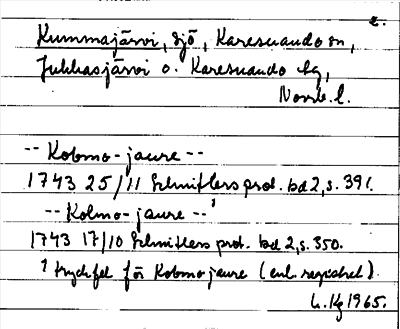 2.
Kummajärvi, sjö, Karesuando sn,
Jukkasjärvi o. Karesuando tg,
Norrb. l.
-- Kobmo-jaure --
1743 25/11 Schnitlers prot. bd 2, s. 391.
-- Kolmo-jaure --¹
1743 17/10 Schnitlers prot. bd 2, s. 350.
¹ tryckfel för Kobmojaure (enl. registret).
L. Hg 1965.